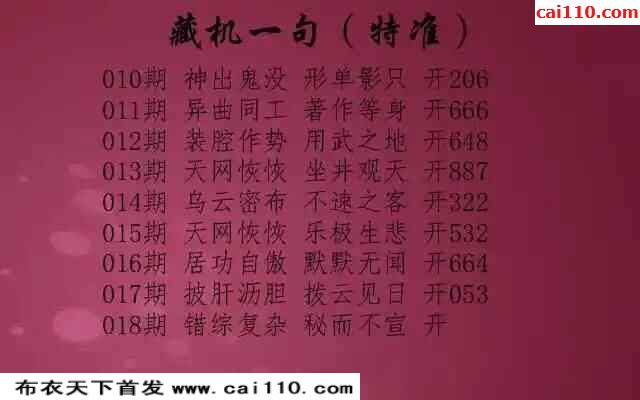 藏机一句（特准）
红财神报码网
cai110.com
010期 神出鬼没 形单影只 开206
011期 异曲同工 著作等身 开666
012期 装腔作势 用武之地 开648
013期 天网恢恢 坐井观天 开887
014期 乌云密布 不速之客 开322
015期 天网恢恢 乐极生悲 开532
016期 居功自傲 默默无闻 开664
017期 披肝沥胆 拨云见日 开053
018期 错综复杂 秘而不宣 开
布衣天下首发 www.cai110.com